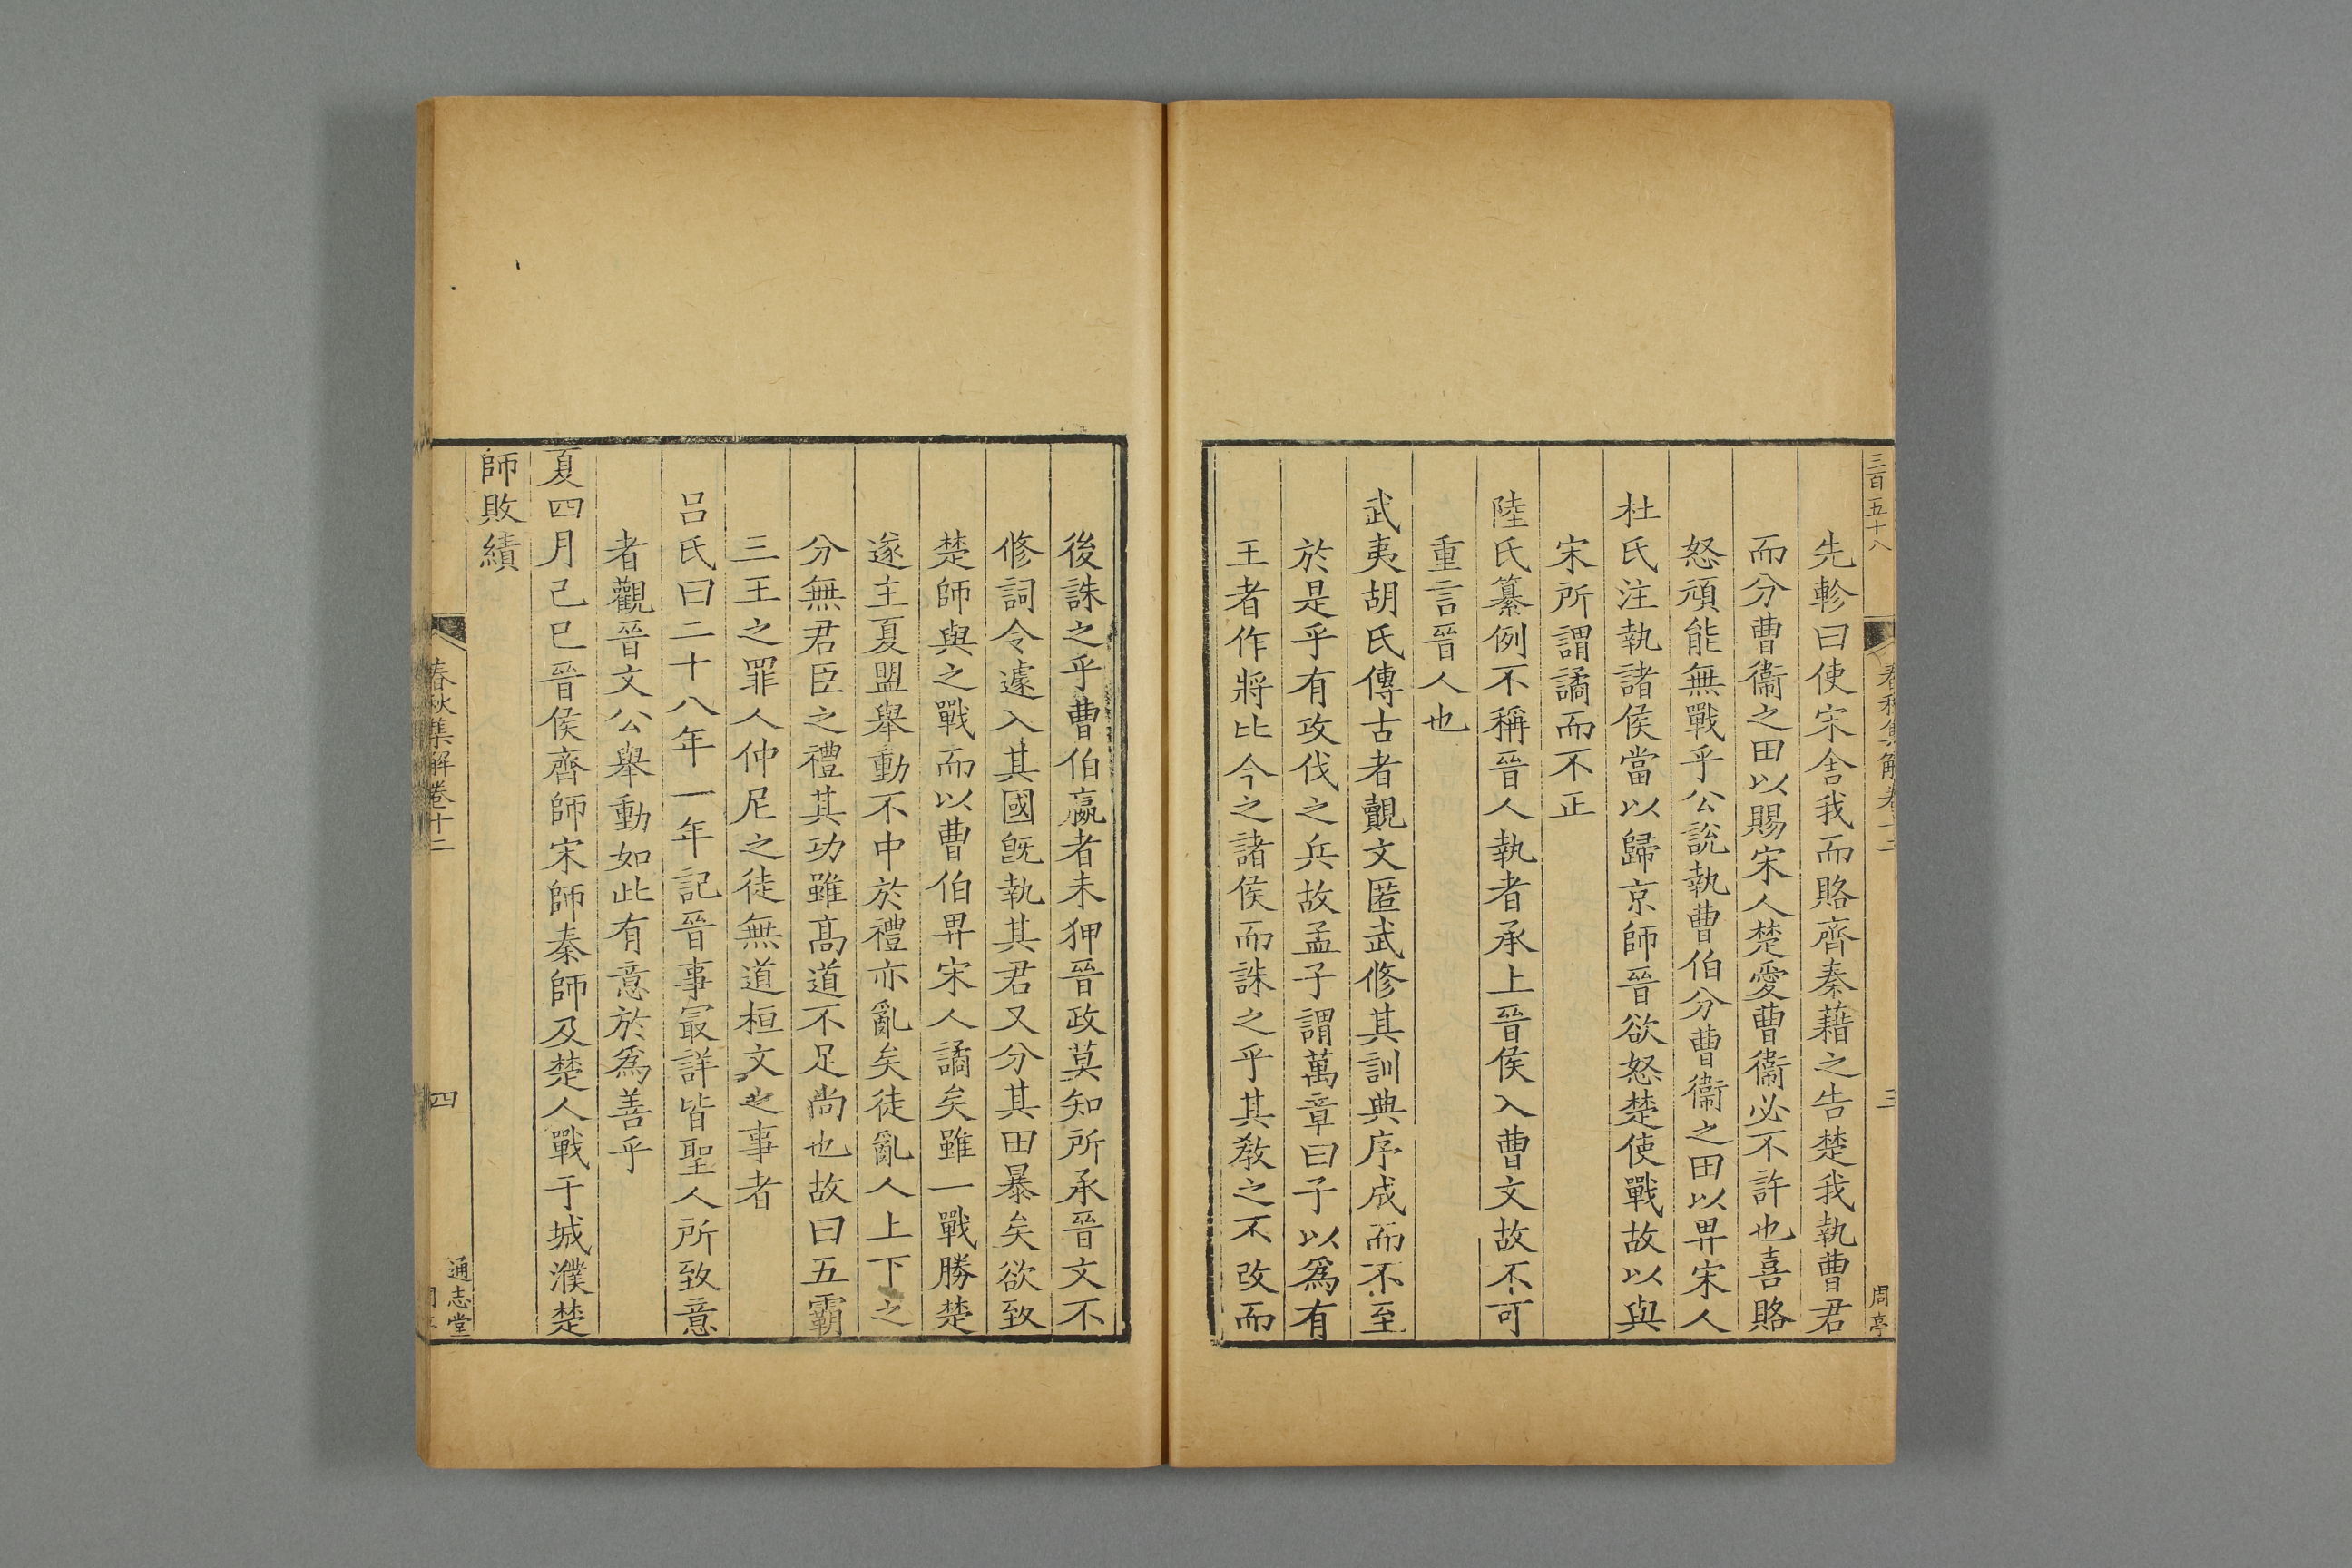 三百五十八
春秋集解卷十二
三
周亭
先軫曰使宋舍我而賂齊秦藉之告楚我執曹君
而分曹衞之田以賜宋人楚愛曹衞必不許也喜賂
怒頑能無戰乎公說執曹伯分曹衞之田以畀宋人
杜氏注執諸侯當以歸京師晉欲怒楚使戰故以與
宋所謂譎而不正
陸氏纂例不稱晉人執者承上晉侯入曹文故不可
重言晉人也
武夷胡氏傳古者覿文匿武修其訓典序成而不至
於是乎有攻伐之兵故孟子謂萬章曰子以爲有
王者作將比今之諸侯而誅之乎其敎之不改而
後誅之乎曹伯羸者未狎晉政莫知所承晉文不
修詞令遽入其國旣執其君又分其田暴矣欲致
楚師與之戰而以曹伯畀宋人譎矣雖一戰勝楚
遂主夏盟舉動不中於禮亦亂矣徒亂人上下之
分無君臣之禮其功雖高道不足尚也故曰五霸
三王之罪人仲尼之徒無道桓文之事者
呂氏曰二十八年一年記晉事㝡詳皆聖人所致意
者觀晉文公舉動如此有意於爲善乎
夏四月己巳晉侯齊師宋師秦師及楚人戰于城濮楚
師敗績
春秋集解卷十二
四
通志堂